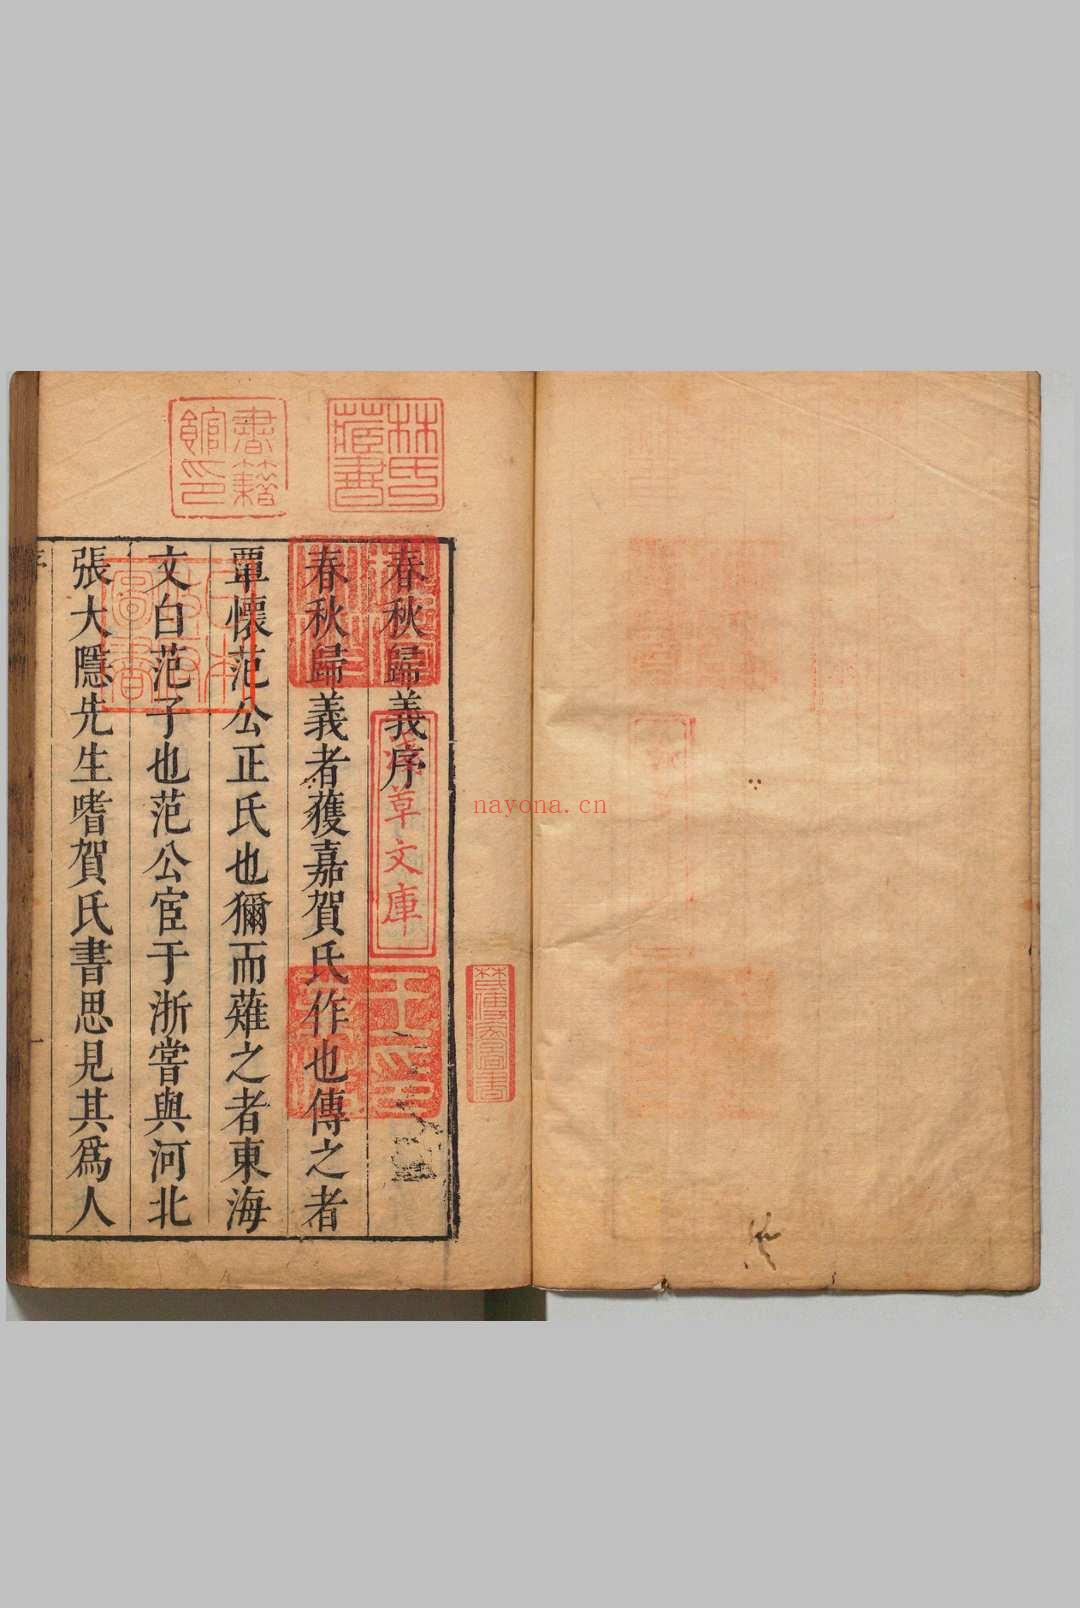 春秋歸義序
春秋歸義者蒦嘉賀氏作也傳之者
覃懷范公正氏也獮而薙之者東海
文白范子也范公宦于浙嘗與河北
張大隱先生嗜賀氏書思見其爲人
序
一
林氏
藏書
書籍
館印
淺草文庫
日本
政府
圖書
nayona.cn